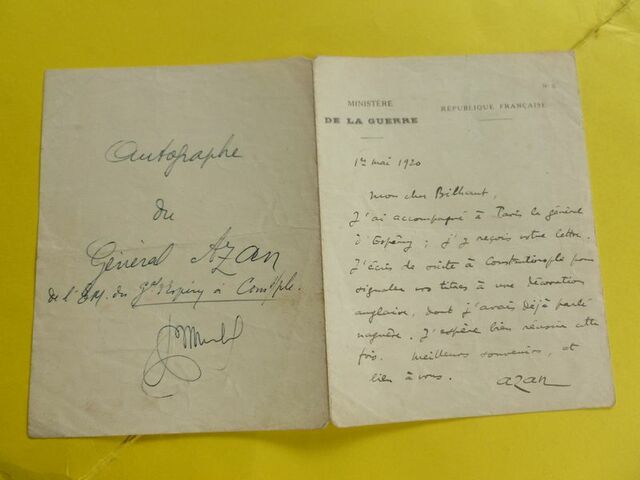 Autographe
du
Général AZAN
de l'E.M. du Gal d'Espérey à Constple.
MINISTÈRE
DE LA GUERRE
RÉPUBLIQUE FRANÇAISE
1er mai 1920
Mon cher Bilhaut,
J'ai accompagné à Paris le général
d'Espérey ; j'y reçois votre lettre.
J'écris de suite à Constantinople pour
signaler vos titres à une décoration
anglaise, dont j'avais déjà parlé
naguère. J'espère bien réussir cette
fois. Meilleurs souvenirs, et
bien à vous. AZAN